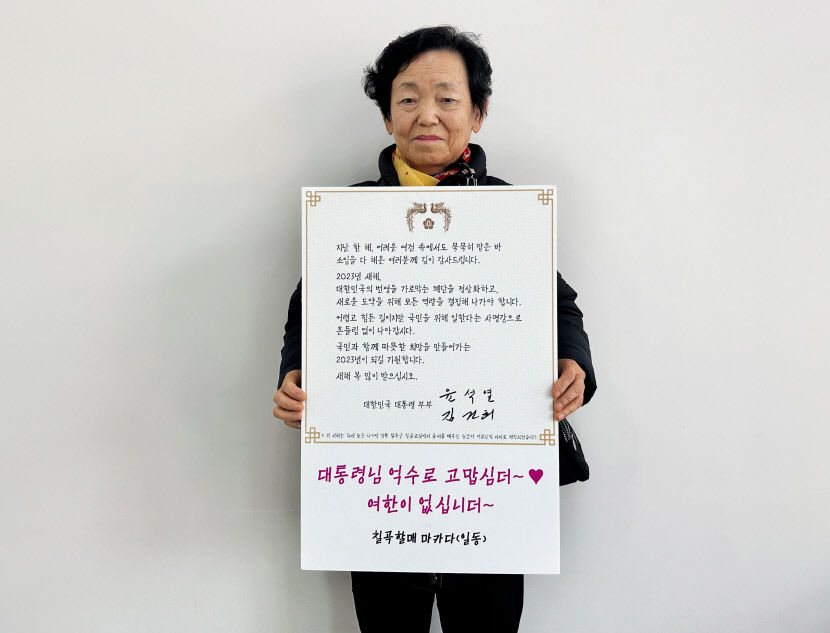 지난 한 해, 어려운 여건 속에서도 묵묵히 맡은 바
소임을 다 해준 여러분께 깊이 감사드립니다.
2023년 새해,
대한민국의 번영을 가로막는 폐단을 정상화하고,
새로운 도약을 위해 모든 역량을 결집해 나가야 합니다.
어렵고 힘든 길이지만 국민을 위해 일한다는 사명감으로
흔들림 없이 나아갑시다.
국민과 함께 따뜻한 희망을 만들어가는
2023년이 되길 기원합니다.
새해 복 많이 받으십시오.
대한민국 대통령 부부 윤석열
김건희
대통령님 억수로 고맙심더~♥
여한이 없십니더~
칠곡할매 마카다(일동)